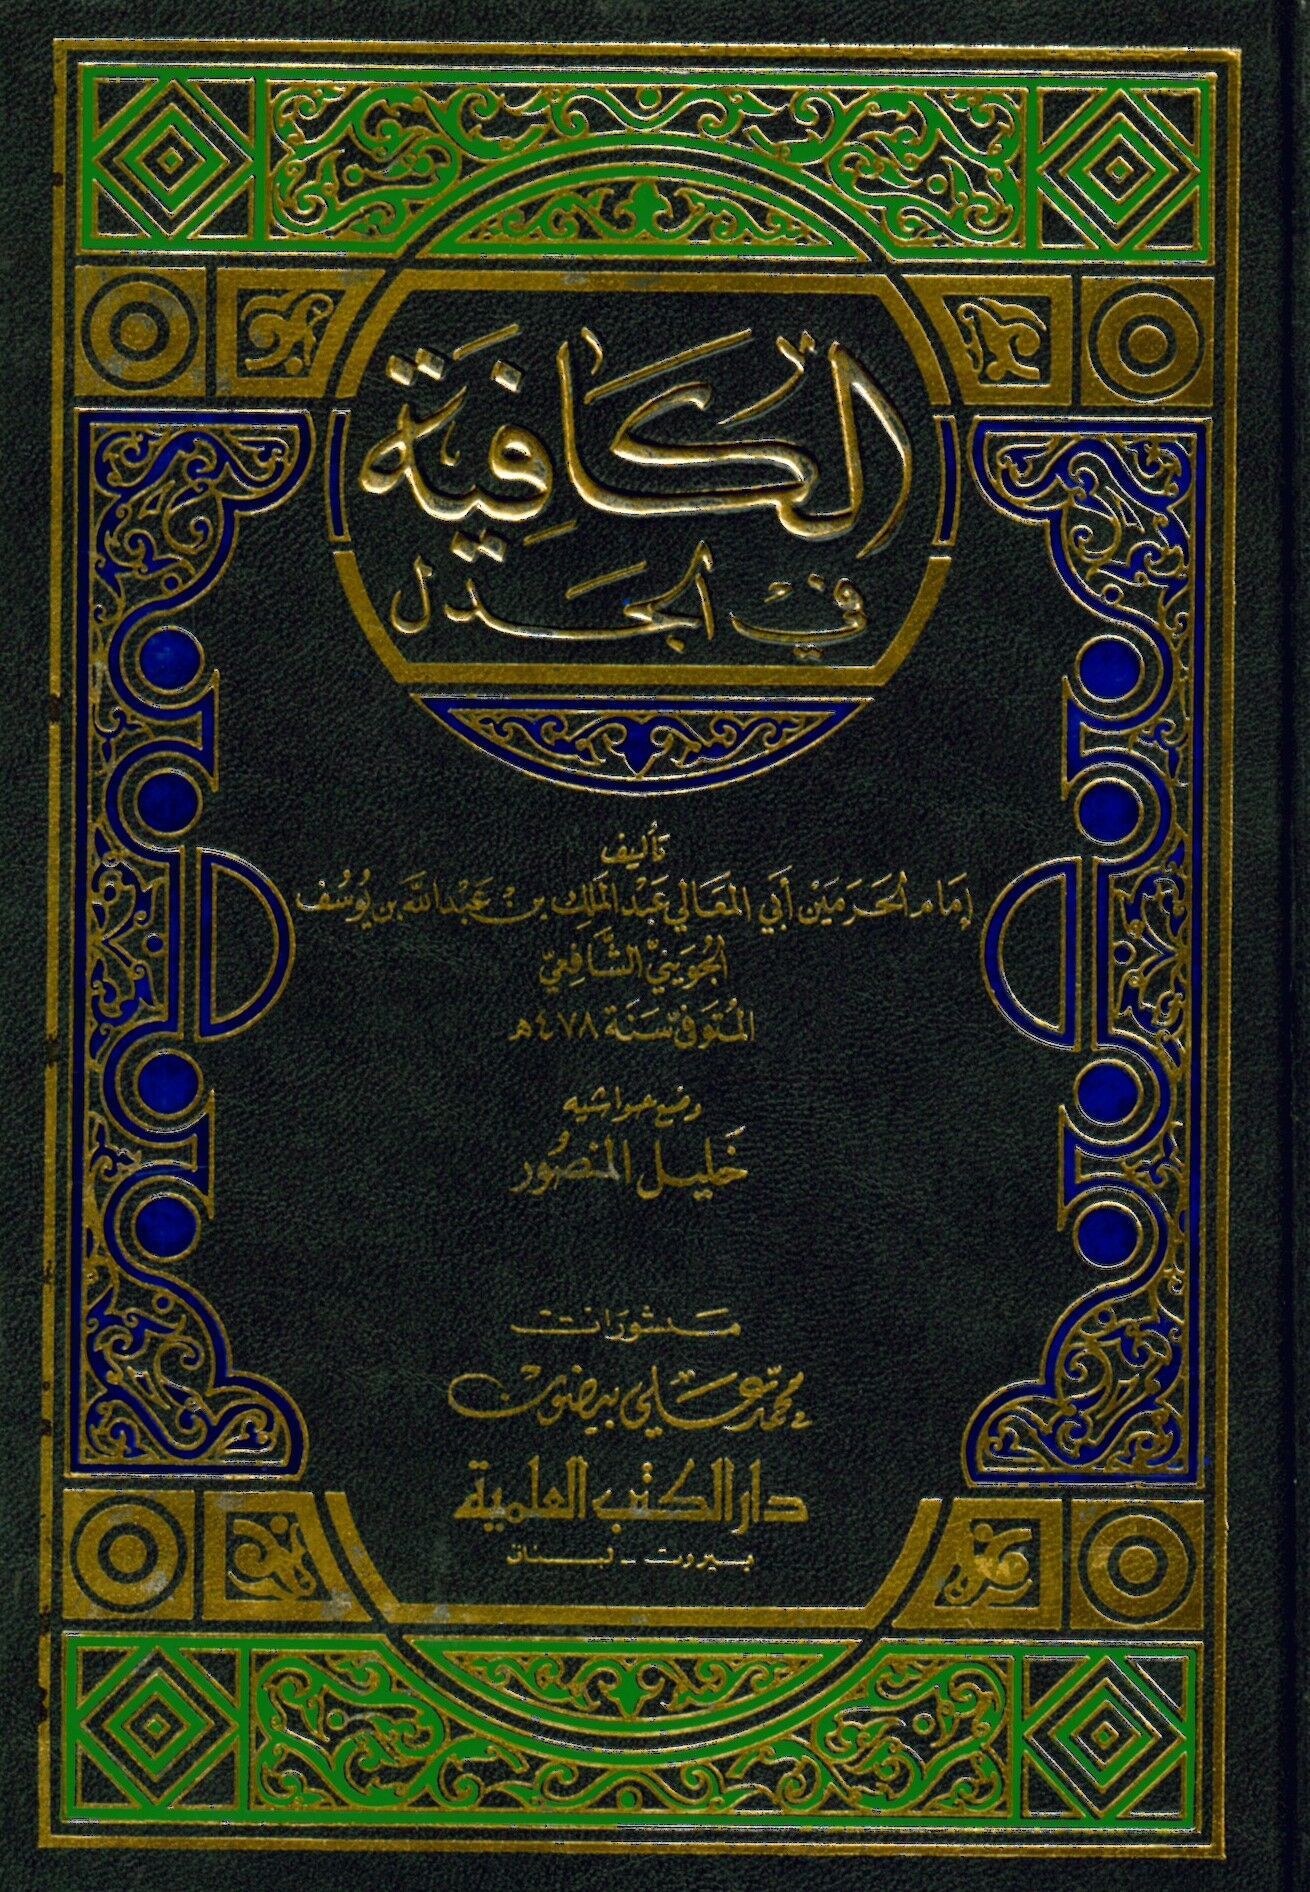 الكَافِيَة
في الجَدَل
تأليف
إمَام الحَرَمَيْن أَبي المَعَالي عَبْد المَلِك بن عَبْد اللَّه بن يُوسُف
الجُوَينيّ الشَّافِعيّ
المُتَوفّى سَنَة ٤٧٨هـ
وضع حواشيه
خَليل المَنصُور
منشورات
محمّد عَلي بيضون
دار الكتب العلمية
بيروت - لبنان